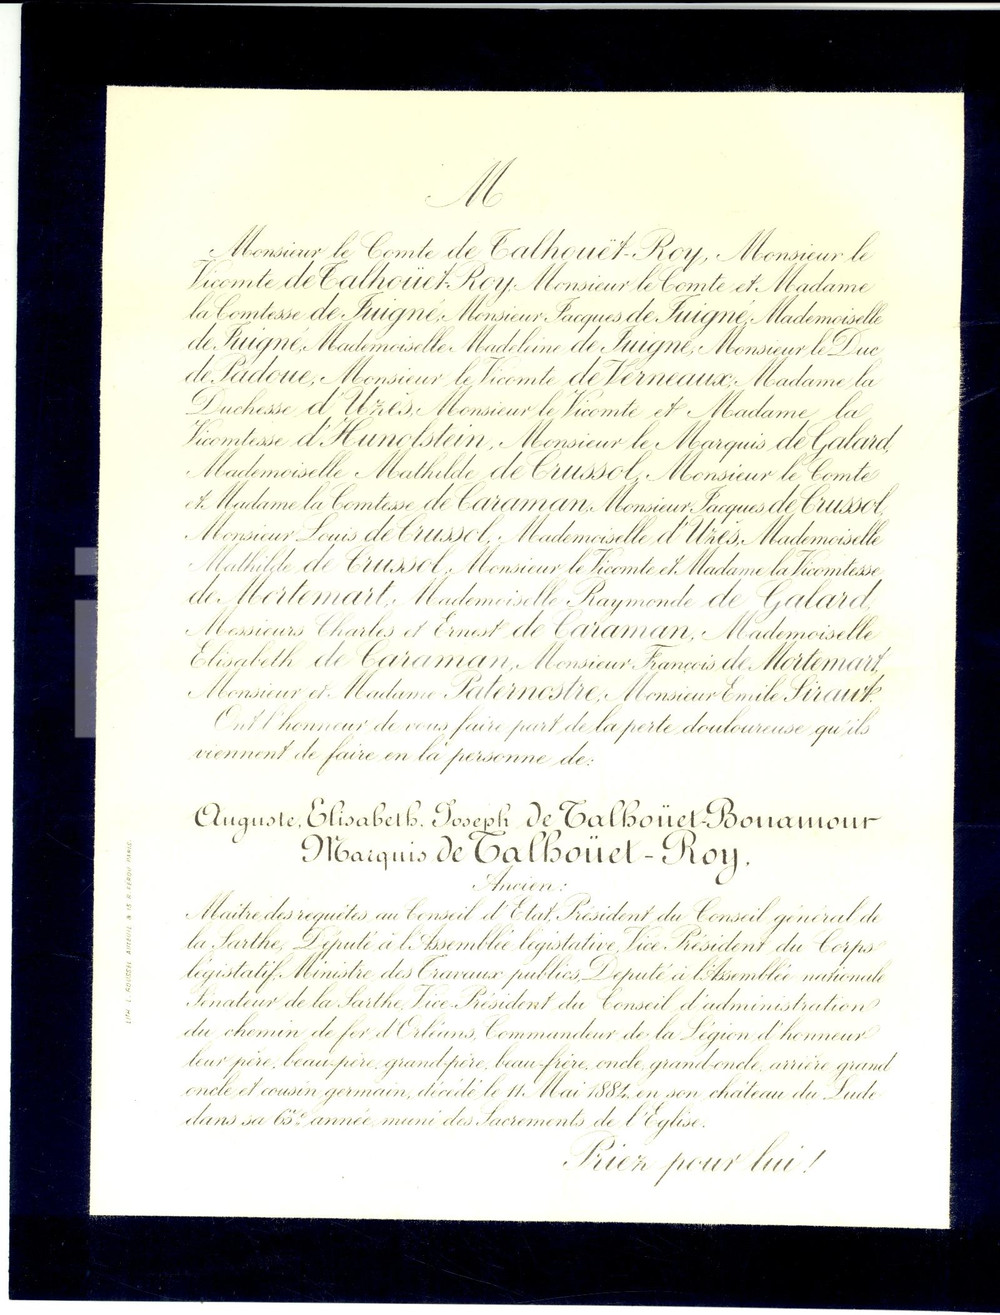 M
Monsieur le Comte de Talhouët-Roy, Monsieur le
Vicomte de Talhoüet-Roy, Monsieur le Comte et Madame
la Comtesse de Juigné, Monsieur Jacques de Juigné, Mademoiselle
de Juigné, Mademoiselle Madeleine de Juigné, Monsieur le Duc
de Padoue, Monsieur le Vicomte de Verneaux, Madame la
Duchesse d'Uzès, Monsieur le Vicomte et Madame la
Vicomtesse d'Hunolstein, Monsieur le Marquis de Galard,
Mademoiselle Mathilde de Crussol, Monsieur le Comte
et Madame la Comtesse de Caraman, Monsieur Jacques de Crussol,
Monsieur Louis de Crussol, Mademoiselle d'Uzès, Mademoiselle
Mathilde de Crussol, Monsieur le Vicomte et Madame la Vicomtesse
de Mortemart, Mademoiselle Raymonde de Galard,
Messieurs Charles et Ernest de Caraman, Mademoiselle
Elisabeth de Caraman, Monsieur François de Mortemart,
Monsieur et Madame Paternostre, Monsieur Emile Siraut.
Ont l'honneur de vous faire part de la perte douloureuse qu'ils
viennent de faire en la personne de:
Auguste, Elisabeth, Joseph de Talhoüet-Bonamour
Marquis de Talhoüet-Roy,
Ancien:
Maître des requêtes au Conseil d'Etat, Président du Conseil général de
la Sarthe, Député à l'Assemblée législative, Vice Président du Corps
législatif, Ministre des Travaux publics, Député à l'Assemblée nationale
Sénateur de la Sarthe, Vice-Président du Conseil d'administration
du chemin de fer d'Orléans, Commandeur de la Légion d'honneur
leur père, beau-père, grand-père, beau-frère, oncle, grand-oncle, arrière grand
oncle et cousin germain, décédé le 11 Mai 1884, en son château du Lude
dans sa 65e année, muni des Sacrements de l'Eglise.
Priez pour lui!